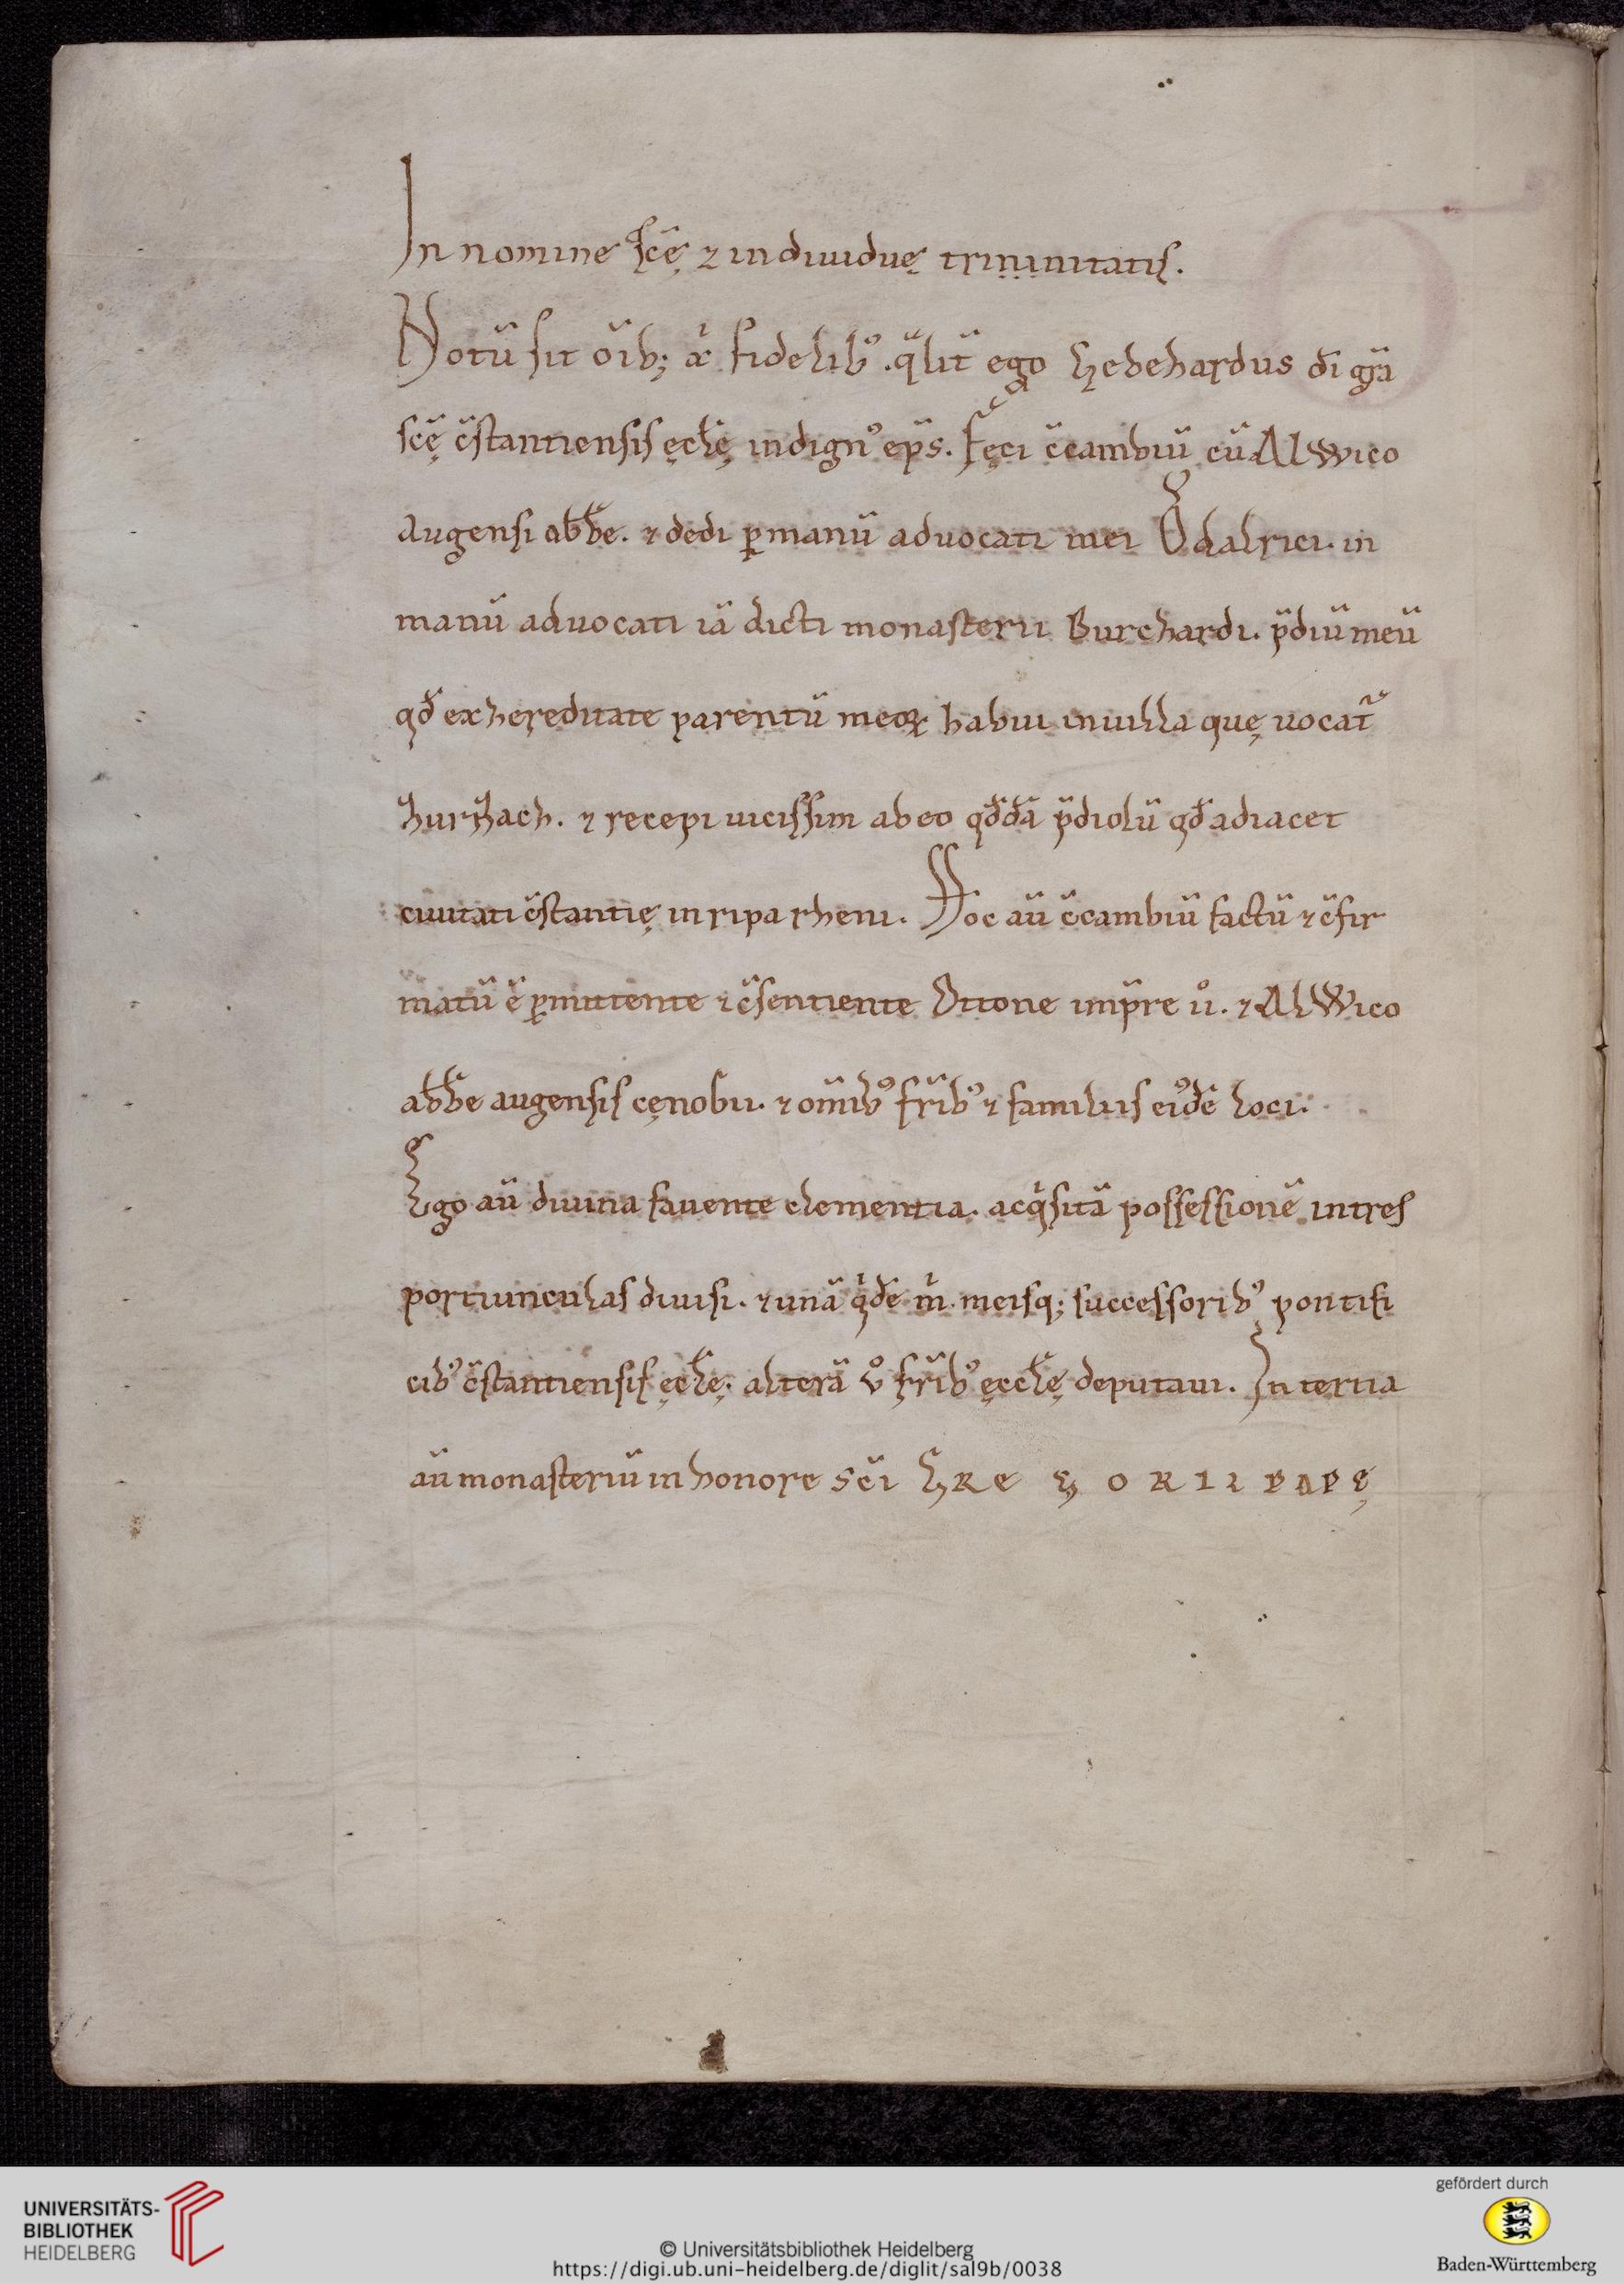 In nomine scę̄ & indiuiduę trininitatis.
Notū sit oīb; xͥ fidelibꝰ. qͣlit̄ ego Gebehardus dī gr̄a
scę̄ c̄stantiensis ęcl̄ę indignꝰ ep̄s. Feci c̄cambiū cū AlWico
Augensi abb̄e. & dedi ꝑ manū aduocati mei Ǒdalrici. in
manū aduocati iā dicti monasterii Burchardi. p̄diū meū
qd̄ ex hereditate parentū meoꝝ habui in uilla quę uocat̄
hurihach. & recepi uicissim ab eo qd̄dā p̄diolū qd̄ adiacet
ciuitati c̄stantię in ripa rheni. Hoc aū c̄cambiū factū & c̄fir
matū ē ꝑmittente & c̄sentiente Ottone imp̄re uͦ. & AlWico
abb̄e augensis cęnobii. & om̄ibꝰ fr̄ibꝰ & familiis eiꝰdē loci.
Ego aū diuina fauente clementia. acqͥsitā possessionē in tres
portiunculas diuisi. & unā qͥdē mͥ. meisq; successoribꝰ pontifi
cibꝰ c̄stantiensis ęcl̄ę; alterā uͦ fr̄ibꝰ ęccl̄ę deputaui. In tertia
aū monasteriū in honore sc̄i GREGORII PAPĘ
UNIVERSITÄTS-
BIBLIOTHEK
HEIDELBERG
© Universitätsbibliothek Heidelberg
https://digi.ub.uni-heidelberg.de/diglit/sal9b/0038
gefördert durch
Baden-Württemberg